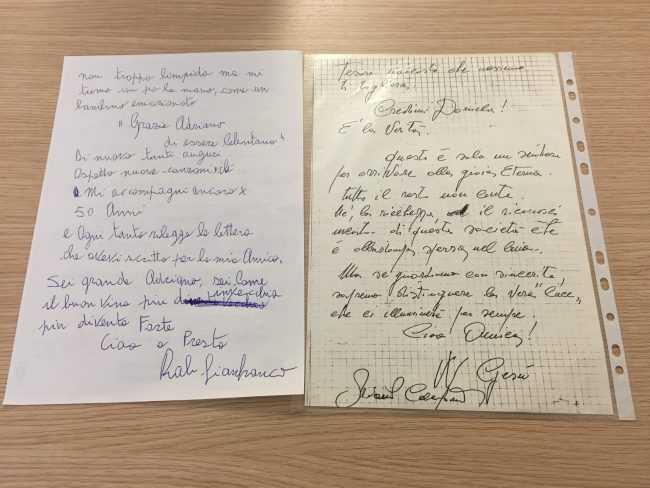 non troppo limpida ma mi
trema un po la mano, come un
bambino emozionato
"Grazie Adriano
di essere Celentano"
Di nuovo tanti auguri
Aspetto nuove canzoni
Mi accompagni ancora x
50 Anni
e Ogni tanto rileggo la lettera
che avevi scritto per la mia Amica.
Sei grande Adriano, sei Come
il buon Vino più invecchia
più diventa Forte
Ciao a Presto
Gianfranco
Tesoro nascosto che nessuno
ti toglierà
Credimi Daniela!
E' la Verità.
Questo è solo un sentiero
per arrivare alla gioia Eterna.
tutto il resto non conta.
Nè la ricchezza, nè il riconosci
mento di questa società che
è abbastanza persa nel buio.
Ma se guardiamo con sincerità,
sapremo distinguere la Vera "luce"
che ci illuminerà per sempre.
Ciao Amica!
W Gesù